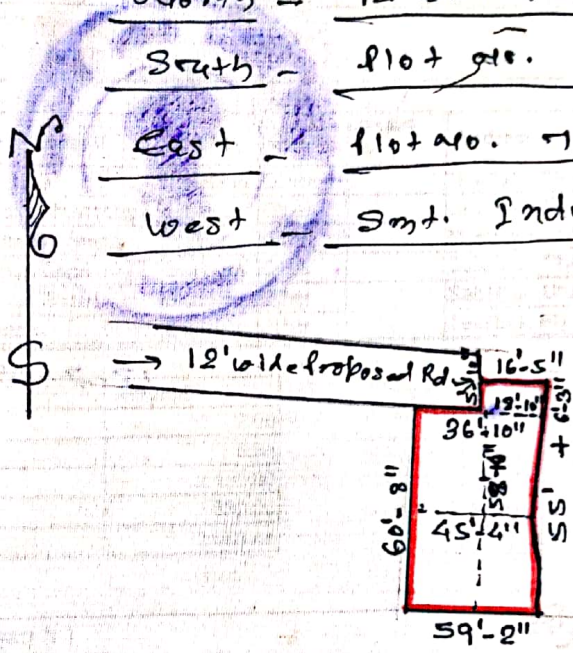 South - Plot no.
East - Plot no. 7
West - Smt. Ind
N
S
→ 12' wide Proposed Rd
16'-5"
18'-10"
36'-10"
55' + 6'-3"
60'-8"
45'-4"
59'-2"